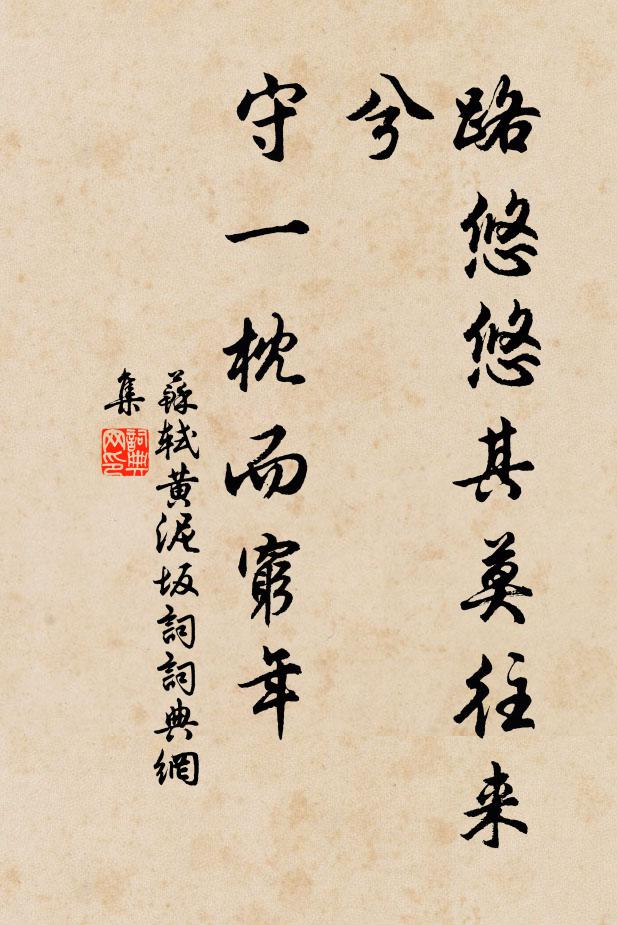 路悠悠其莫往来
兮
守一枕而窮年
蘇軾黄泥坂詞詞典網
集
詞典
网印